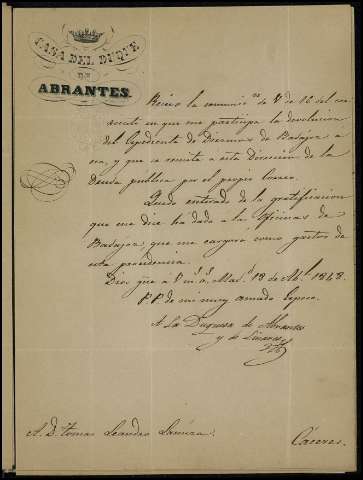 CASA DEL DUQUE
DE
ABRANTES.
Recivo la comunicon de V de 16 del
en que me participa la devolucion
del Espediente de Diezmos de Badajoz a
esa, y que se remita a esta Direccion de la
Deuda publica por el propio Correo.
Quedo enterado de la gratificacion
que me dice ha dado a las Oficinas de
Badajoz que me cargará como gastos de
esta procedencia.
Dios gue a V ms as Madd 18 de Abl 1848.
PP de mi muy amado Esposo.
A La Duquesa de Abrantes
y de Linares
S. D. Tomas Leandro
Cáceres.